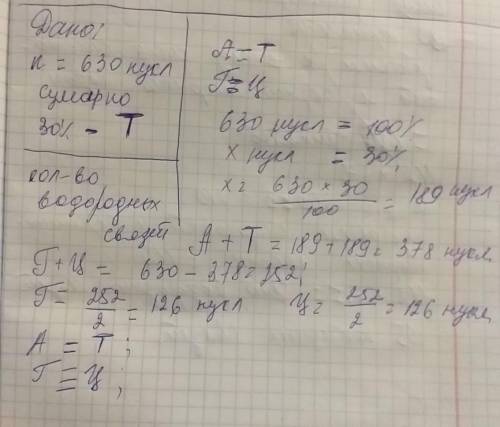 Дано:
n = 630 нукл
сумарно
30% - Т
кол-во
водородных
связей
А = Т
Г ≡ Ц
630 нукл = 100%
х нукл = 30%
х = 630 × 30 / 100 = 189 нукл
А + Т = 189 + 189 = 378 нукл.
Г + Ц = 630 - 378 = 252;
Г = 252 / 2 = 126 нукл Ц = 252 / 2 = 126 нукл
А = Т;
Г ≡ Ц;